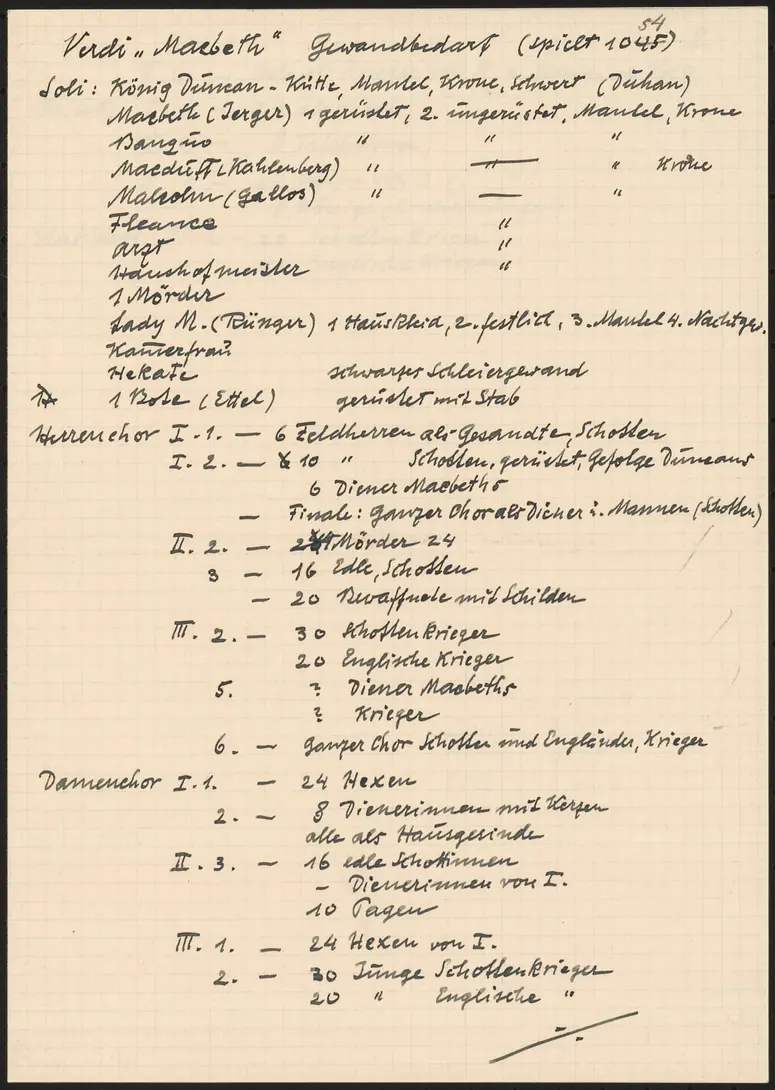 54
Verdi „Macbeth" Gewandbedarf (spielt 1045)
Soli: König Duncan - Kutte, Mantel, Krone, Schwert (Duhan)
Macbeth (Jerger) 1 gerüstet, 2. ungerüstet, Mantel, Krone
Banquo " " "
Macduff (Kahlenberg) " — " Krone
Malcolm (Gallos) " — "
Fleance "
Arzt "
Haushofmeister "
1 Mörder
Lady M. (Rünger) 1 Hauskleid, 2. festlich, 3. Mantel 4. Nachtgew.
Kamerfrau
Hekate schwarzes Schleiergewand
1 Bote (Ettel) gerüstet mit Stab
Herrenchor I. 1. — 6 Feldherren als Gesandte, Schotten
I. 2. — 10 " Schotten, gerüstet, Gefolge Duncans
6 Diener Macbeths
— Finale: Ganzer Chor als Diener u. Mannen (Schotten)
II. 2. — Mörder 24
3 — 16 Edle, Schotten
— 20 Bewaffnete mit Schilden
III. 2. — 30 Schottenkrieger
20 Englische Krieger
5. ? Diener Macbeths
? Krieger
6. — Ganzer Chor Schotten und Engländer, Krieger
Damenchor I. 1. — 24 Hexen
2. — 8 Dienerinnen mit Kerzen
alle als Hausgesinde
II. 3. — 16 edle Schottinnen
– Dienerinnen von I.
10 Pagen
III. 1. — 24 Hexen von I.
2. — 30 Junge Schottenkrieger
20 " Englische "